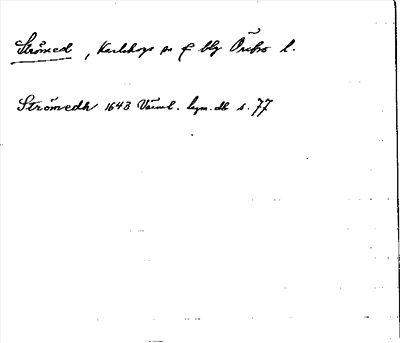 Strömed, Karlskoga sn o bg Örebro l.
Strömedh 1643 Värml. lagm. db s. 77